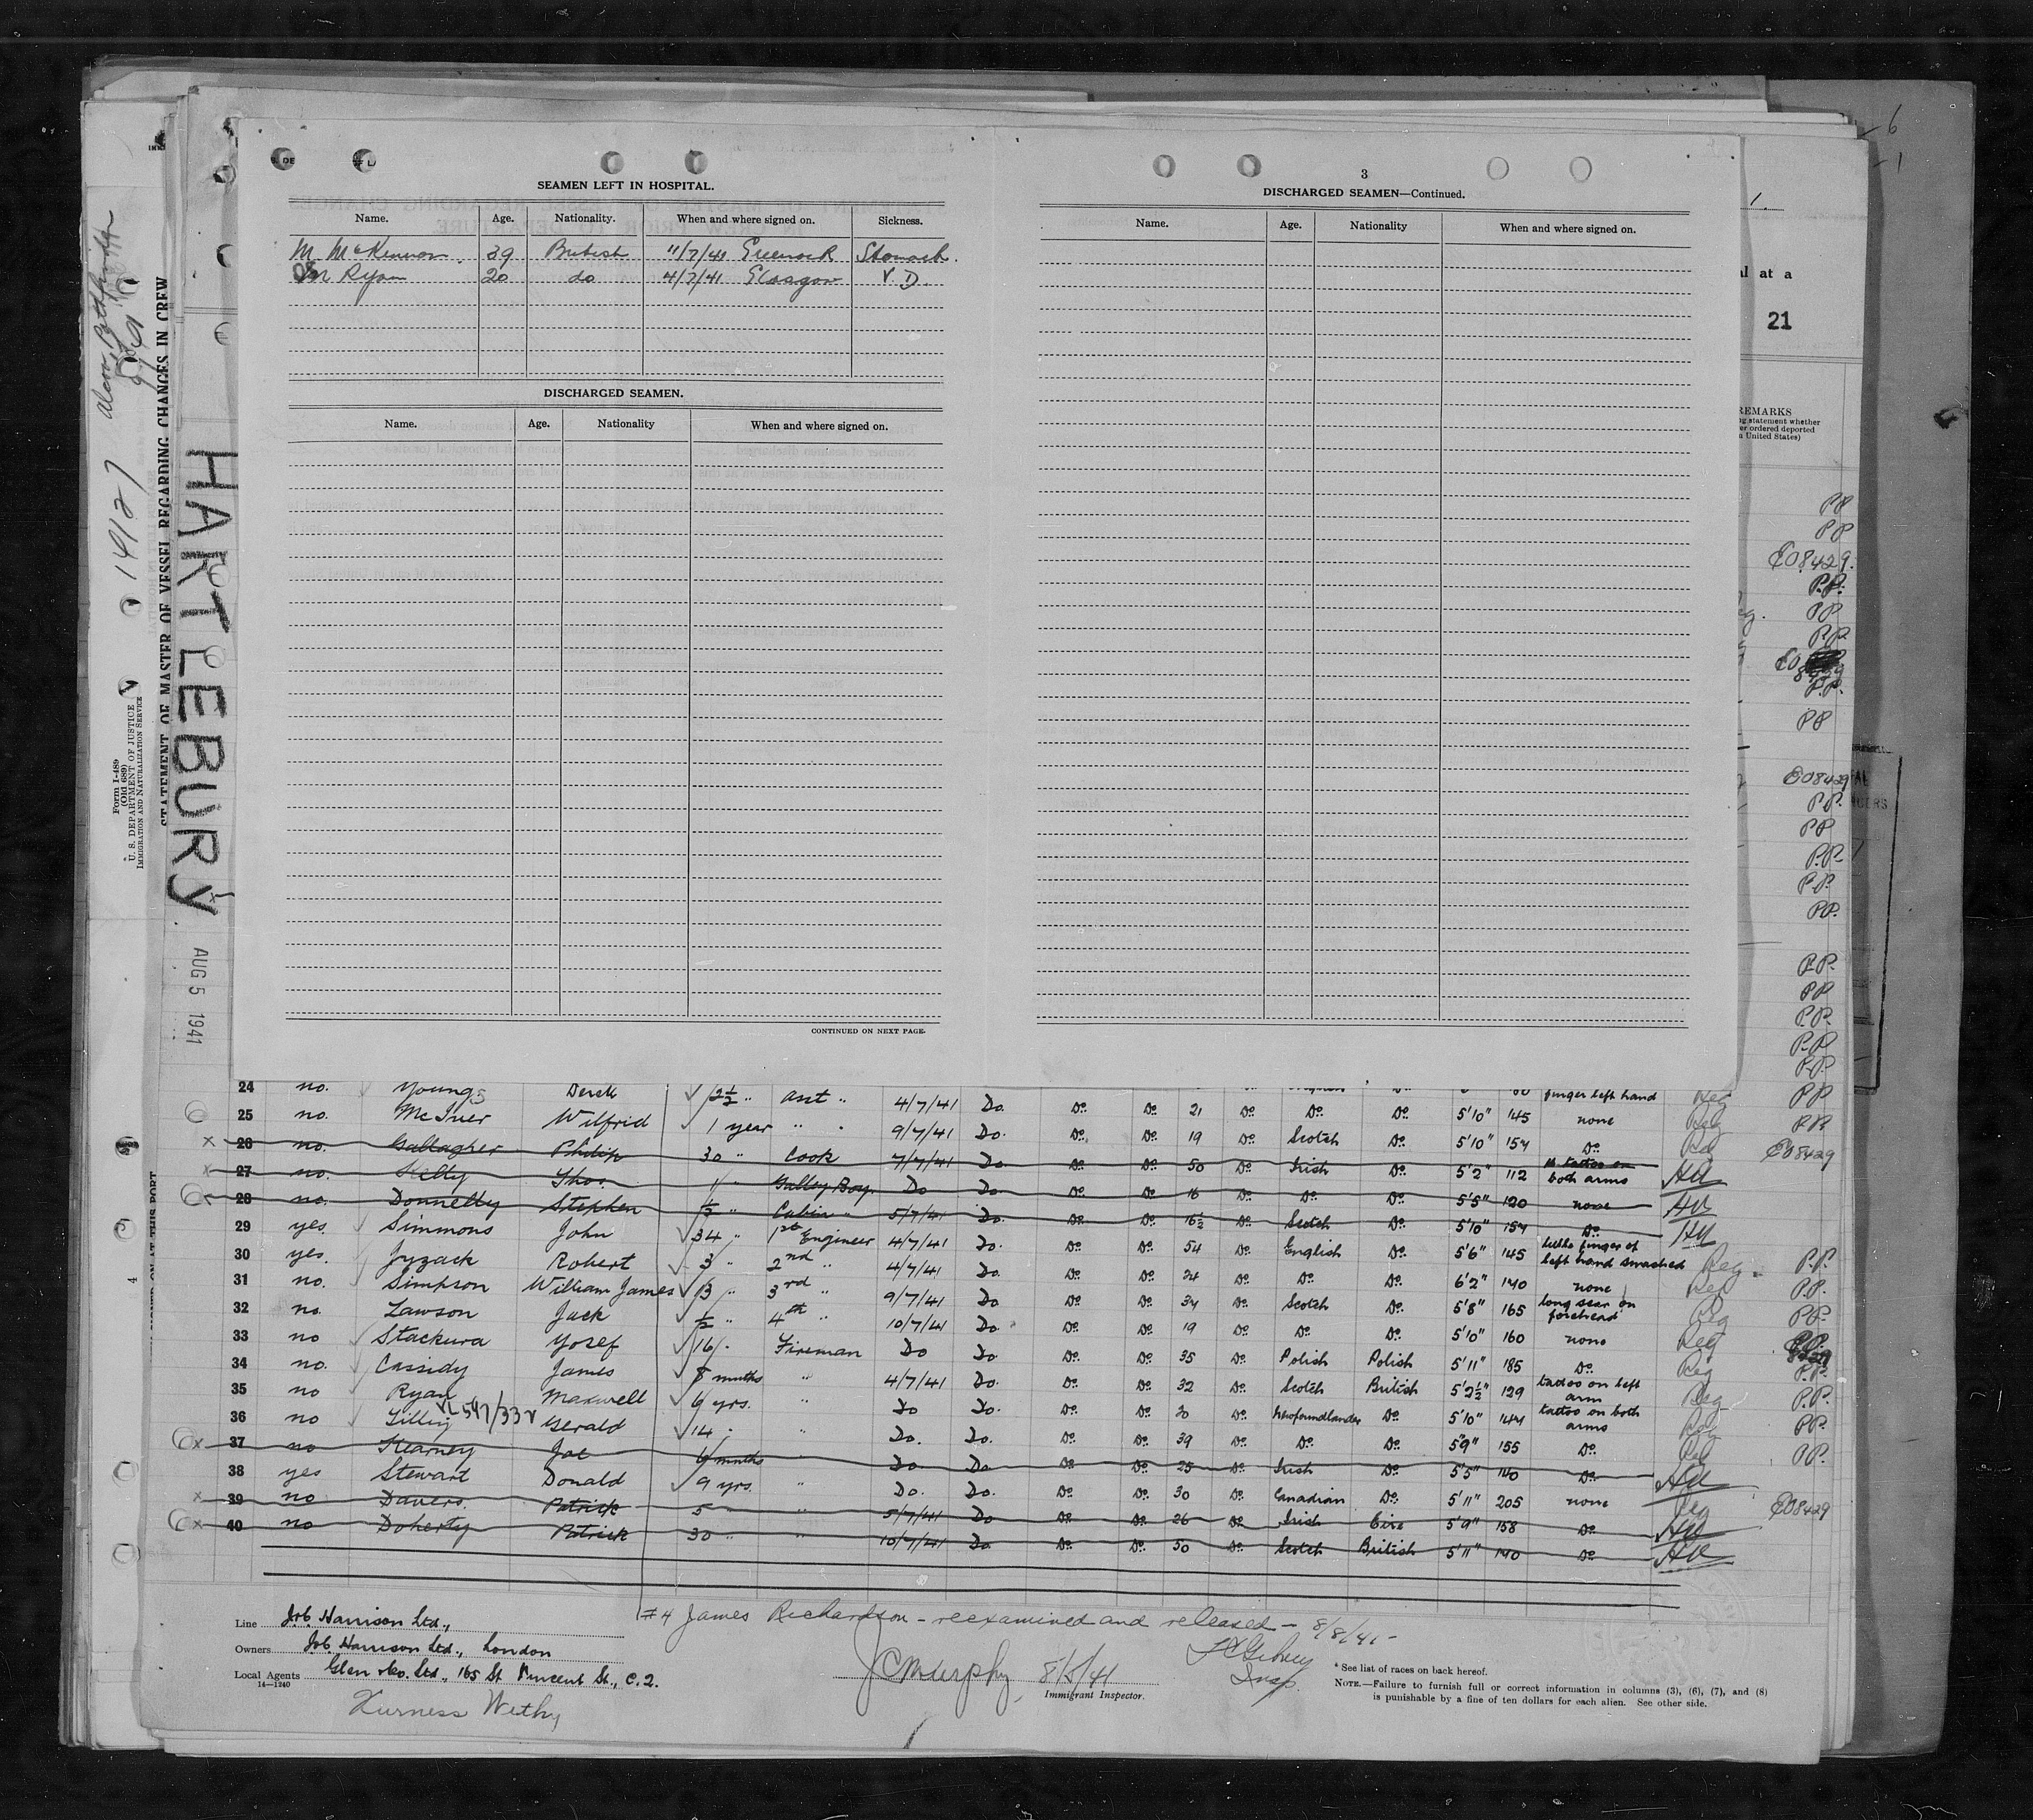 SEAMEN LEFT IN HOSPITAL.
Name. Age. Nationality. When and where signed on. Sickness.
M McKinnon. 39 British 11/7/41 Greenock Stomach.
M Ryan 20 do 4/7/41 Glasgow V.D.
DISCHARGED SEAMEN.
Name. Age. Nationality When and where signed on.
CONTINUED ON NEXT PAGE.
3
DISCHARGED SEAMEN—Continued.
Name. Age. Nationality When and where signed on.
al at a
21
REMARKS
ng statement whether
er ordered deported
n United States)
PP
PP
E08429.
P.P.
PP
P.P.
P.P.
PP
E08429
P.P.
PP
P.P.
P.P.
PP.
P.P.
PP
P.P.
P.P.
P.P.
14127
Form I-489
(Old 689)
U. S. DEPARTMENT OF JUSTICE
IMMIGRATION AND NATURALIZATION SERVICE
STATEMENT OF MASTER OF VESSEL REGARDING CHANGES IN CREW
HARTLEBURY
AUG 5 1941
4
24 no. Youngs Derek 2½ " asst " 4/7/41 Do. finger left hand Reg PP
25 no. McIver Wilfrid 1 year " " 9/7/41 Do. Do. Do. 21 Do. Do. Do. 5'10" 145 none Reg PP
x 26 no. Gallagher Philip 30 " Cook 7/7/41 Do Do. Do. 19 Do. Scotch Do. 5'10" 154 Do. E08429
x 27 no. Kelly Thos. 1 " Galley Boy. Do Do. Do. Do. 50 Do. Irish Do. 5'2" 112 tattoo on both arms
x 28 no. Donnelly Stephen ½ " Cabin " 5/7/41 Do. Do. Do. 16 Do. Do. Do. 5'5" 120 none
29 yes. Simmons John 34 " 1st Engineer 4/7/41 Do. Do. Do. 16½ Do. Scotch Do. 5'10" 154 Do.
30 yes. Jyzack Robert 3 " 2nd " 4/7/41 Do. Do. Do. 54 Do. English Do. 5'6" 145 little finger of left hand smashed Reg. P.P.
31 no. Simpson William James 13 " 3rd " 9/7/41 Do Do. Do. 24 Do. Do. Do. 6'2" 140 none Reg P.P.
32 no. Lawson Jack ½ " 4th " 10/7/41 Do. Do. Do. 34 Do. Scotch Do. 5'8" 165 long scar on forehead Reg P.P.
33 no Stackura Yosef 16 " Fireman Do Do Do. Do. 19 Do. Do. Do. 5'10" 160 none Reg
34 no. Cassidy James 8 months " 4/7/41 Do. Do. Do. 35 Do. Polish Polish 5'11" 185 Do. Reg P.P.
35 no Ryan Maxwell 6 yrs. " Do Do. Do. Do. 32 Do. Scotch British 5'2½" 129 tattoo on left arm Reg P.P.
36 no Gerald 14 " " Do. Do. Do. Do. 20 Do. Newfoundlander Do. 5'10" 144 tattoo on both arms Reg PP.
x 37 no Kearney Joe 6 months " Do Do Do. Do. 39 Do. Do. Do. 5'9" 155 Do. P.P.
38 yes Stewart Donald 9 yrs. " Do. Do. Do. Do. 25 Do. Irish Do. 5'5" 140 Do.
x 39 no Davers. Patrick 5 " 5/7/41 Do Do. Do. 30 Do. Canadian Do. 5'11" 205 none Reg E08429
x 40 no Doherty Patrick 30 " " 10/7/41 Do Do. Do. 26 Do. Irish Eire 5'9" 158 Do.
Do. Do. 50 Do. Scotch British 5'11" 140 Do.
#4 James Richardson – reexamined and released – 8/8/41 –
Line J & C Harrison Ltd.,
Owners J & C Harrison Ltd., London
Local Agents Glen & Co. Ltd., 165 St Vincent St., C.2.
14—1240
Furness Withy
J C Murphy 8/5/41
Immigrant Inspector.
Insp.
* See list of races on back hereof.
NOTE.—Failure to furnish full or correct information in columns (3), (6), (7), and (8)
is punishable by a fine of ten dollars for each alien. See other side.